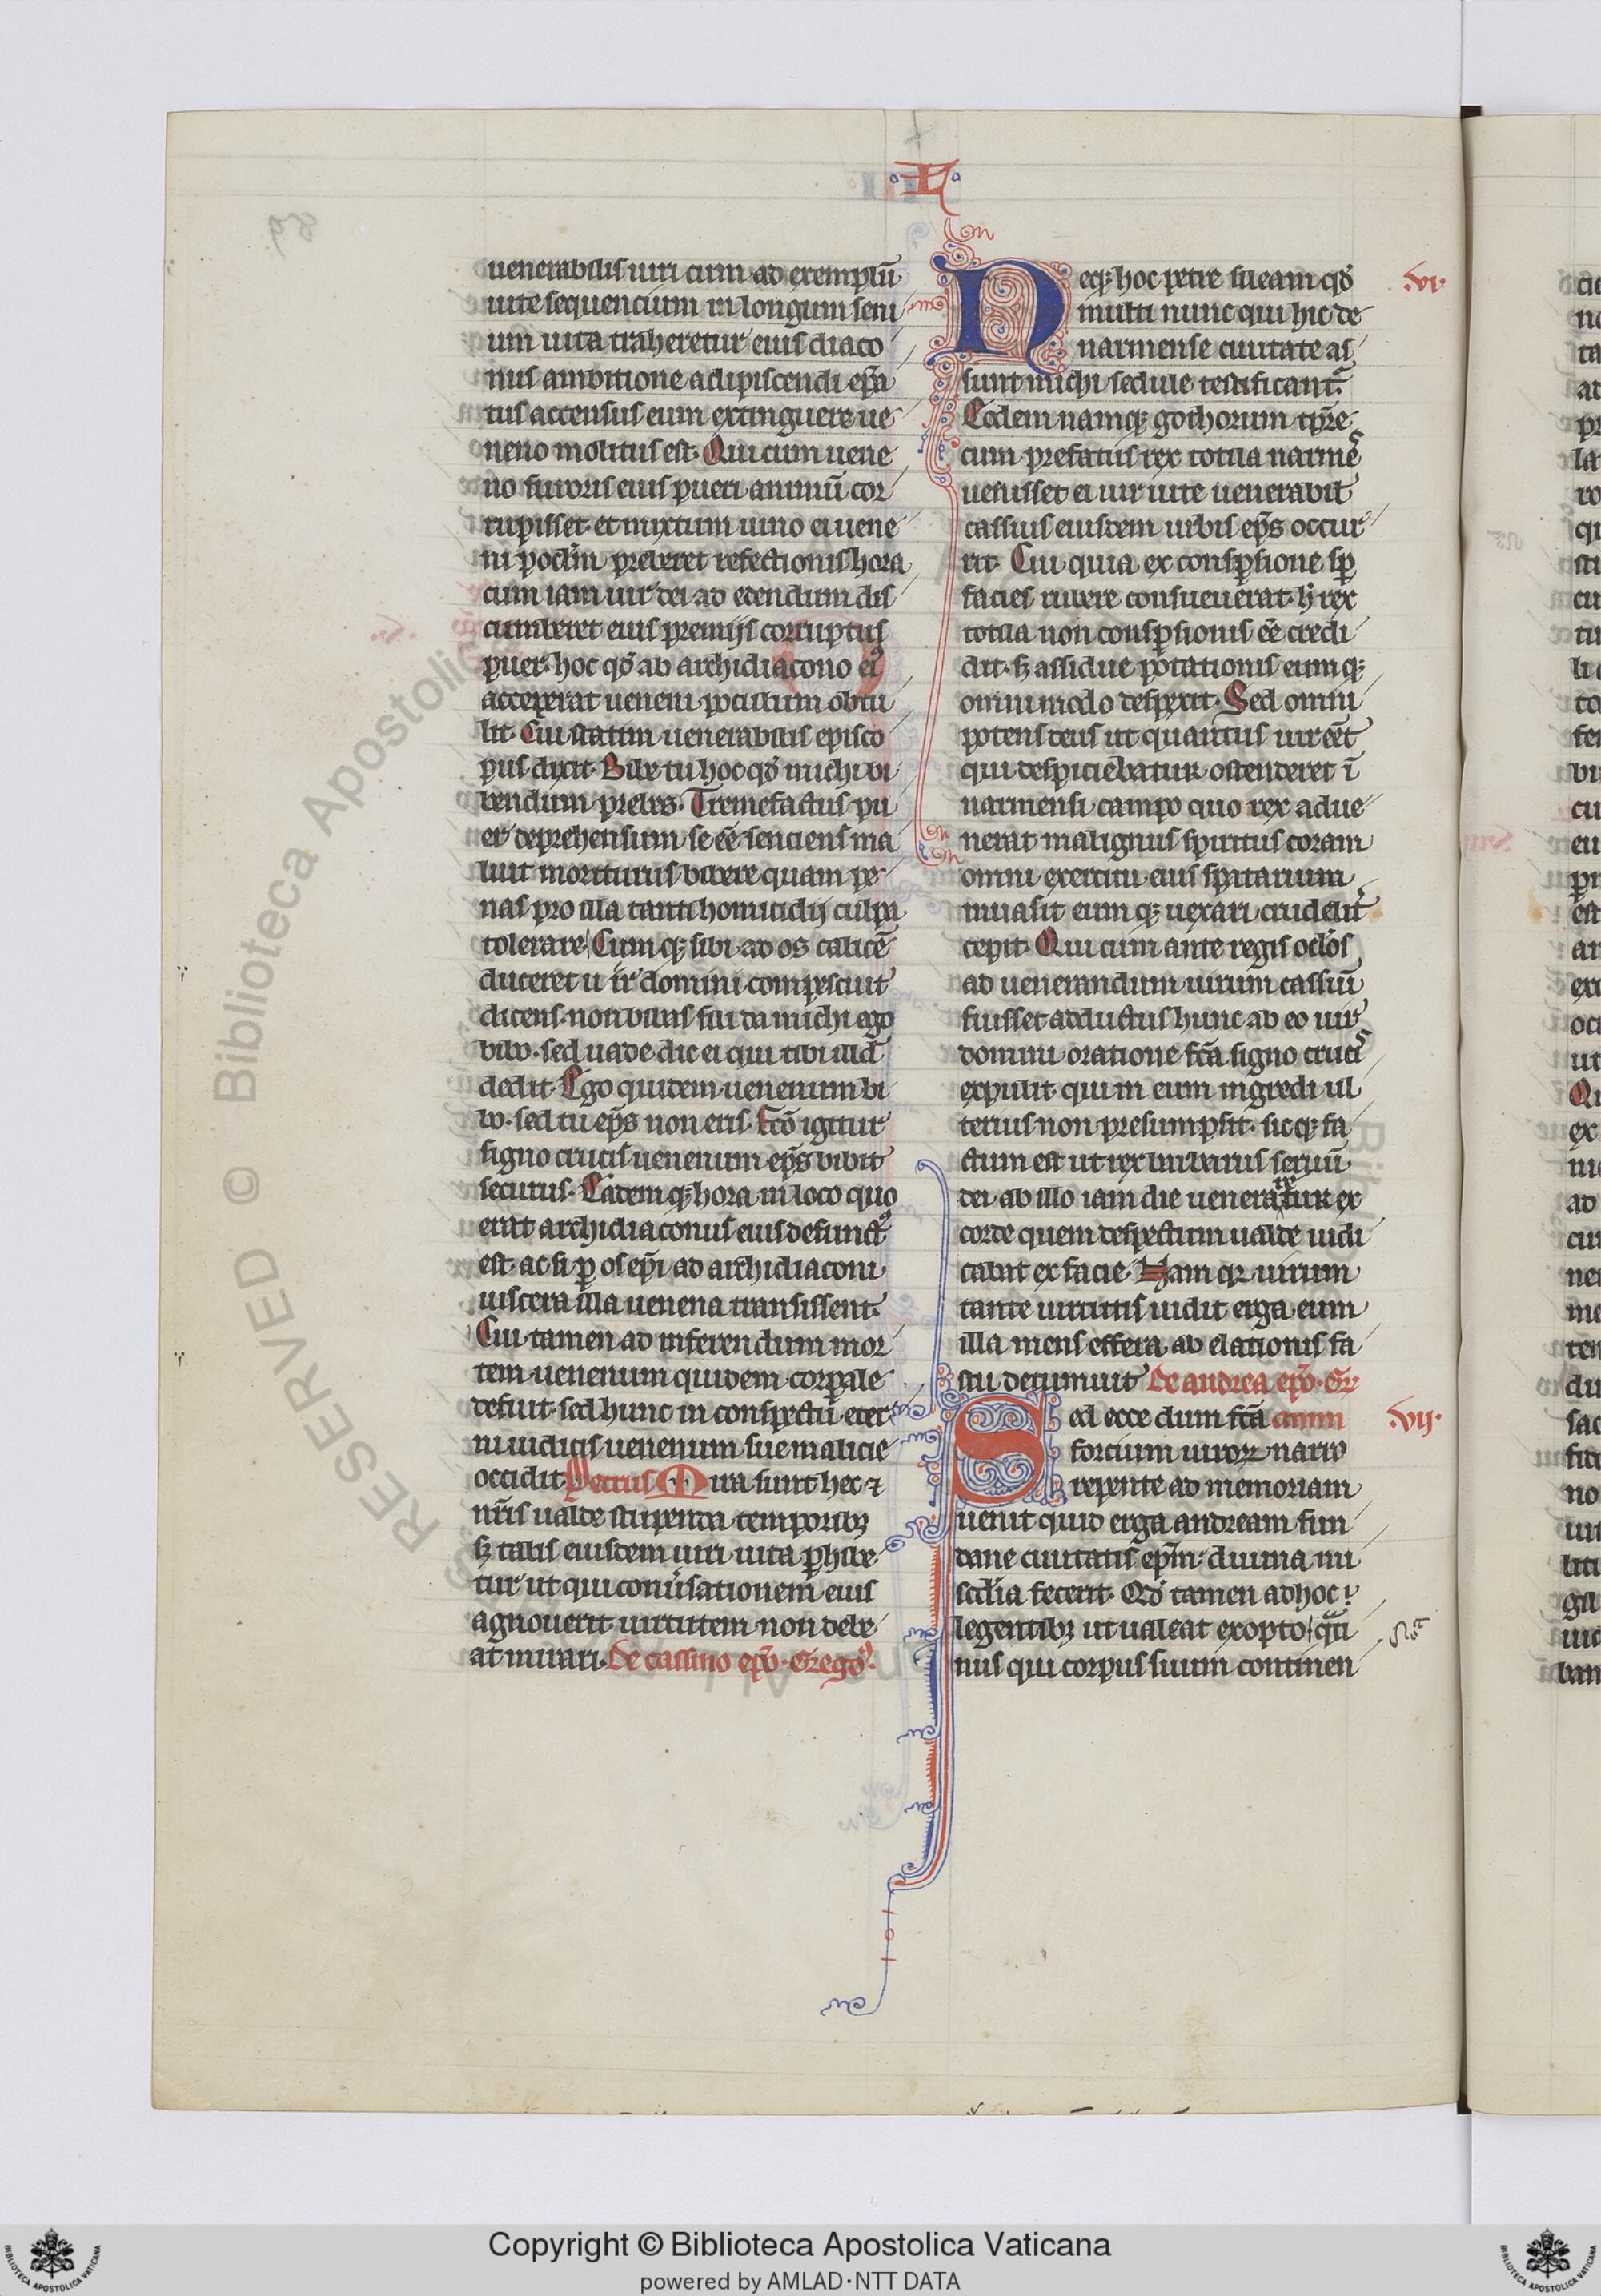 L
uenerabilis uiri cum ad exemplū
uite sequencium in longum seni
um uita traheretur eius diaco
nus ambitione adipiscendi ep̄a
tus accensus eum extinguere ue
neno molitus est. Qui cum uene
no furoris eius pueri animū cor
rupisset et mixtum uino ei uene
ni poclm̄ preberet refectionis hora
cum iam uir dei ad edendum dis
cumberet eius premijs corruptus
puer. hoc qd̄ ab archidiacono eiꝰ
acceperat ueneni poculum obtu
lit. Cui statim uenerabilis episco
pus dixit. Bibe tu hoc qd̄ michi bi
bendum prebes. Tremefactus pu
er deprehensum se eē senciens ma
luit moriturus bibere quam pe
nas pro illa tanti homicidij culpa
tolerare Cumqꝫ sibi ad os calicē
duceret uir domini compescuit
dicens. non bibas fili da michi ego
bibo. sed uade dic ei qui tibi illd̄
dedit. Ego quidem uenenum bi
bo. sed tu ep̄s non eris. Fcō igitur
signo crucis uenenum ep̄s bibit
securus. Eademqꝫ hora in loco quo
erat archidiaconus eius defunctꝰ
est. ac si ꝑ os ep̄i ad archidiaconi
uiscera illa uenena transissent.
Cui tamen ad inferendum mor
tem uenenum quidem corporale
defuit. sed hunc in conspectū eter
ni iudicis uenenum sue malicie
occidit. Petrus Mira sunt hec ⁊
nr̄is ualde stupenda temporibꝫ
sꝫ talis eiusdem uiri uita ꝑhibe
tur ut qui conūsationem eius
agnouerit uirtutem non debe
at mirari. De cassino ep̄o. Gregoꝰ.
Neqꝫ hoc petre sileam qd̄
multi nunc qui hic de
narniense ciuitate as
sunt michi sedule testificant᷑.
Eodem namqꝫ gothorum tp̄re
cum prefatus rex totila narnie
uenisset ei uir uite uenerabil᷑
cassius eiusdem urbis ep̄s occur
rit. Cui quia ex consp̄sione sp̄
facies rubere consueuerat. h̄ rex
totila non consp̄sionis eē credi
dit. sꝫ assidue potationis eumqꝫ
omnimodo despexit. Sed omni
potens deus ut quantus uir eēt
qui despiciebatur ostenderet ī
narniensi campo quo rex adue
nerat malignus spiritus coram
omni exercitu eius spatarium
inuasit eumqꝫ uexari crudelit᷑
cepit. Qui cum ante regis oclo̅s
ad uenerandum uirum cassiū
fuisset adductus hunc ab eo uir
domini oratione fcā signo crucis
expulit qui in eum ingredi ul
terius non presumpsit. sicqꝫ fa
ctum est ut rex barbarus seruū
dei ab illo iam die ueneraretur ex
corde quem despectum ualde iudi
cabat ex facie. Nam qꝛ uirum
tante uirtutis uidit erga eum
illa mens effera ab elationis fa
stu detumuit De andrea ep̄o. Gr̄
Sed ecce dum fcā
forcium uiroꝝ narro
repente ad memoriam
uenit quid erga andream fun
dane ciuitatis ep̄m: diuina mi
sc̄dia fecerit. Qd̄ tamen ad hoc
legentibꝫ ut ualeat exopto qti
nus qui corpus suum continen
.vi.
.vij.